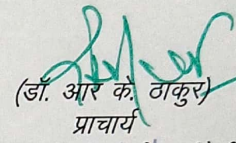 (डॉ. आर के. ठाकुर)
प्राचार्य